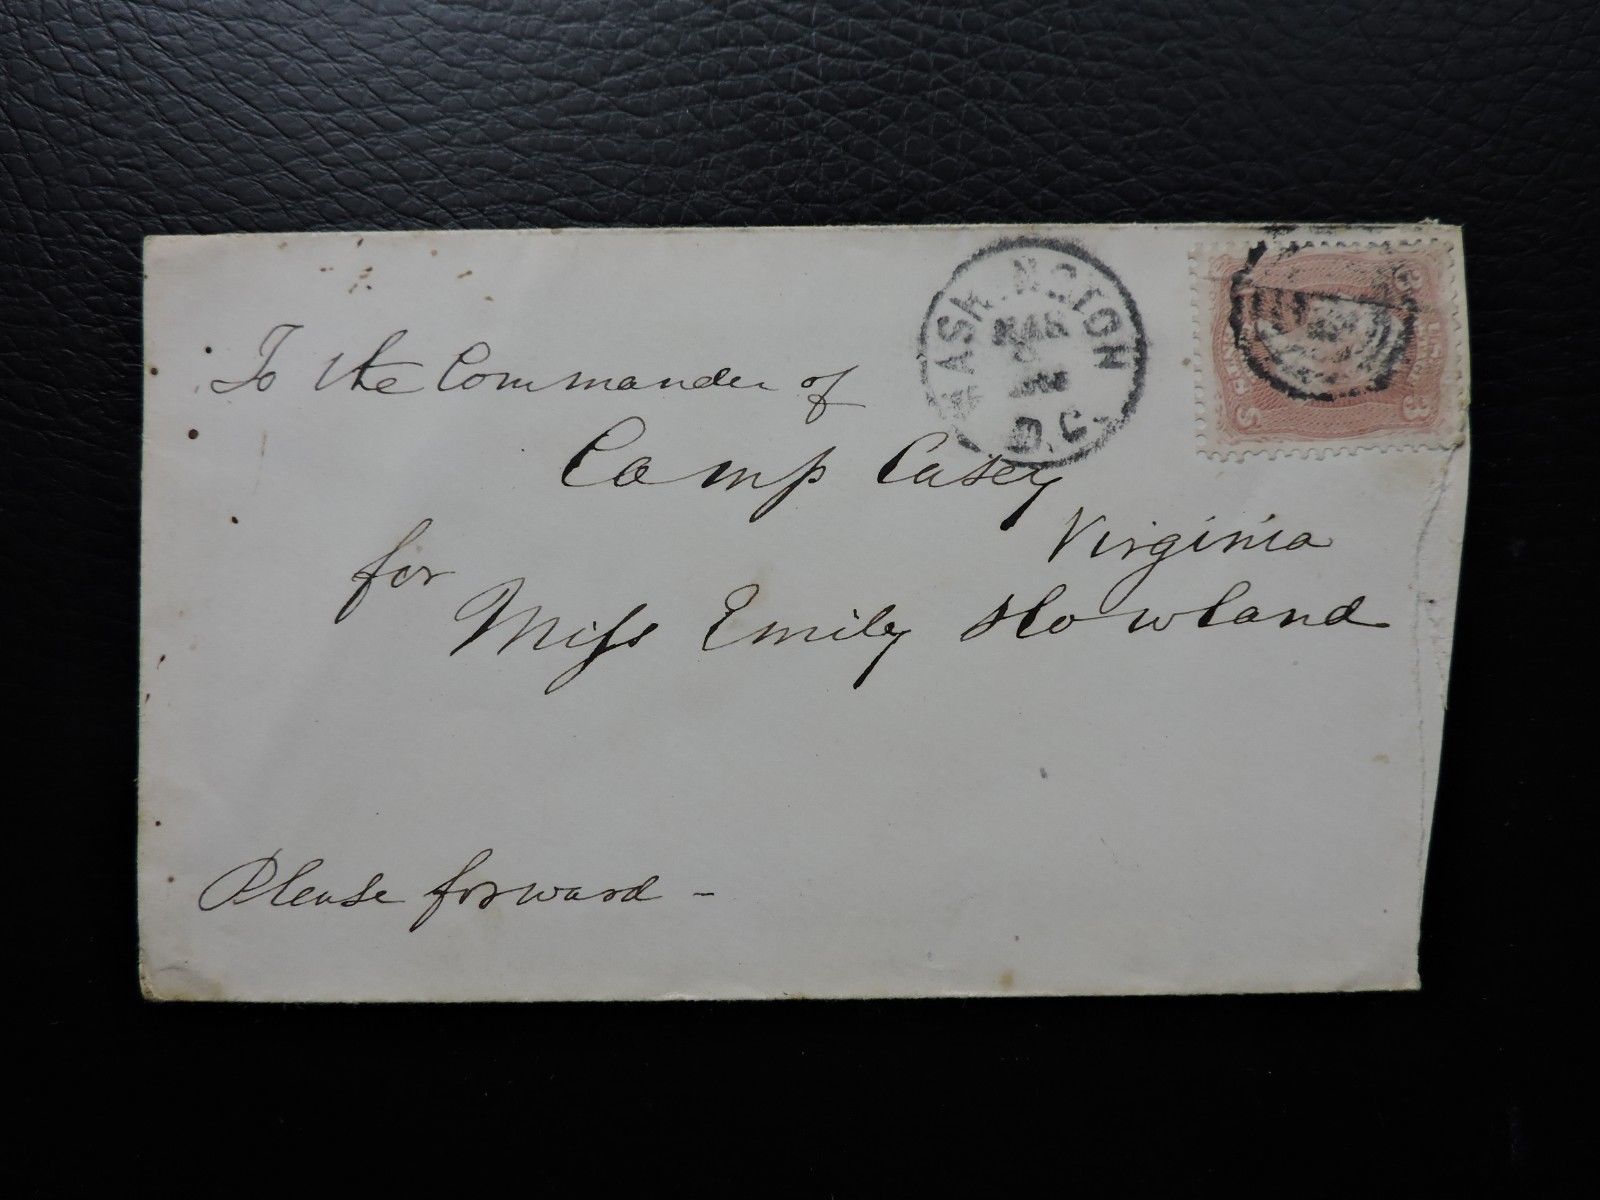 WASHINGTON
MAR
D.C.
3
3
To the Commander of
Camp Casey
Virginia
for
Miss Emily Howland
Please forward -